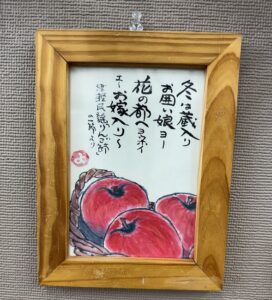 冬は蔵入り
お囲い娘ヨー
花の都へコラホイ
エ～お嫁入り～
津軽民謡りんご節
の一節より